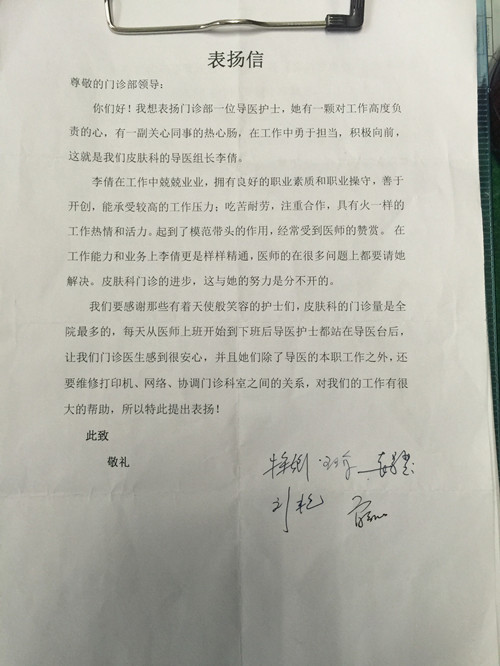 表扬信
尊敬的门诊部领导：
你们好！我想表扬门诊部一位导医护士，她有一颗对工作高度负
责的心，有一副关心同事的热心肠，在工作中勇于担当，积极向前，
这就是我们皮肤科的导医组长李倩。
李倩在工作中兢兢业业，拥有良好的职业素质和职业操守，善于
开创，能承受较高的工作压力；吃苦耐劳，注重合作，具有火一样的
工作热情和活力。起到了模范带头的作用，经常受到医师的赞赏。在
工作能力和业务上李倩更是样样精通，医师的在很多问题上都要请她
解决。皮肤科门诊的进步，这与她的努力是分不开的。
我们要感谢那些有着天使般笑容的护士们，皮肤科的门诊量是全
院最多的，每天从医师上班开始到下班后导医护士都站在导医台后，
让我们门诊医生感到很安心，并且她们除了导医的本职工作之外，还
要维修打印机、网络、协调门诊科室之间的关系，对我们的工作有很
大的帮助，所以特此提出表扬！
此致
敬礼